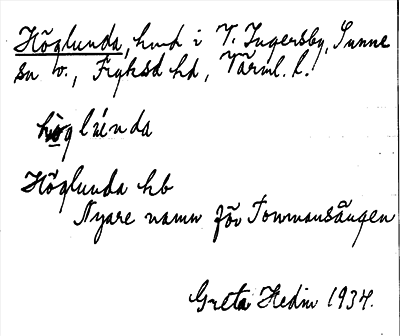 Höglunda, hmd i V. Ingersby, Sunne
sn v., Fryksd hd, Värml. l.
höglúnda
Höglunda hb
Nyare namn för Tommansängen
Greta Hedin 1934.